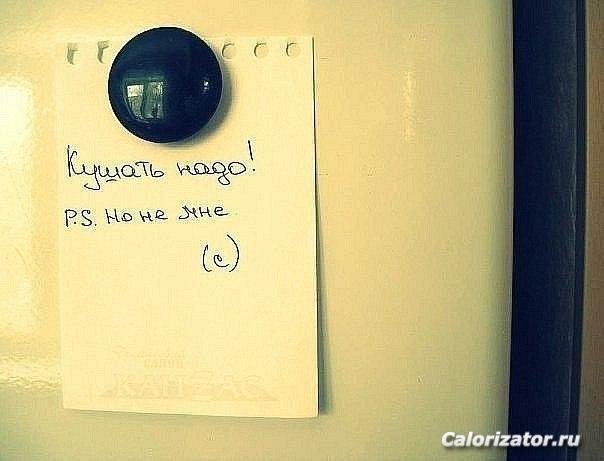 Кушать надо!
P.S. но не мне
(с)
САЛОН
КАНЗАС
Calorizator.ru